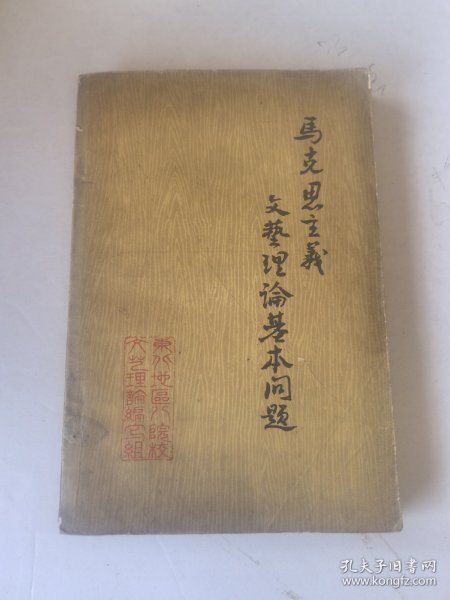 馬克思主義
文藝理論基本問題
東北地區八院校
文艺理論編写組
孔夫子旧书网
www.kongfz.com